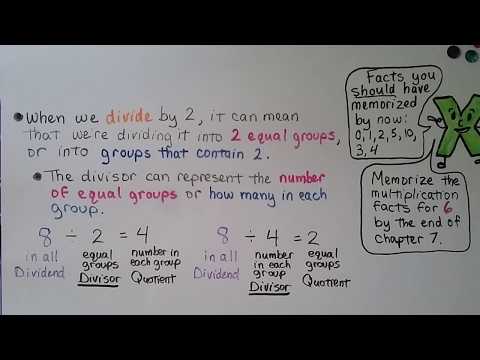 • When we divide by 2, it can mean
that we're dividing it into 2 equal groups,
or into groups that contain 2.
• The divisor can represent the number
of equal groups or how many in each
group.
8 ÷ 2 = 4
in all equal number in
groups each group
Dividend Divisor Quotient
8 ÷ 4 = 2
in all number equal
in each groups
group
Dividend Divisor Quotient
Facts you
should have
memorized
by now:
0, 1, 2, 5, 10,
3, 4
Memorize the
multiplication
facts for 6
by the end of
chapter 7.